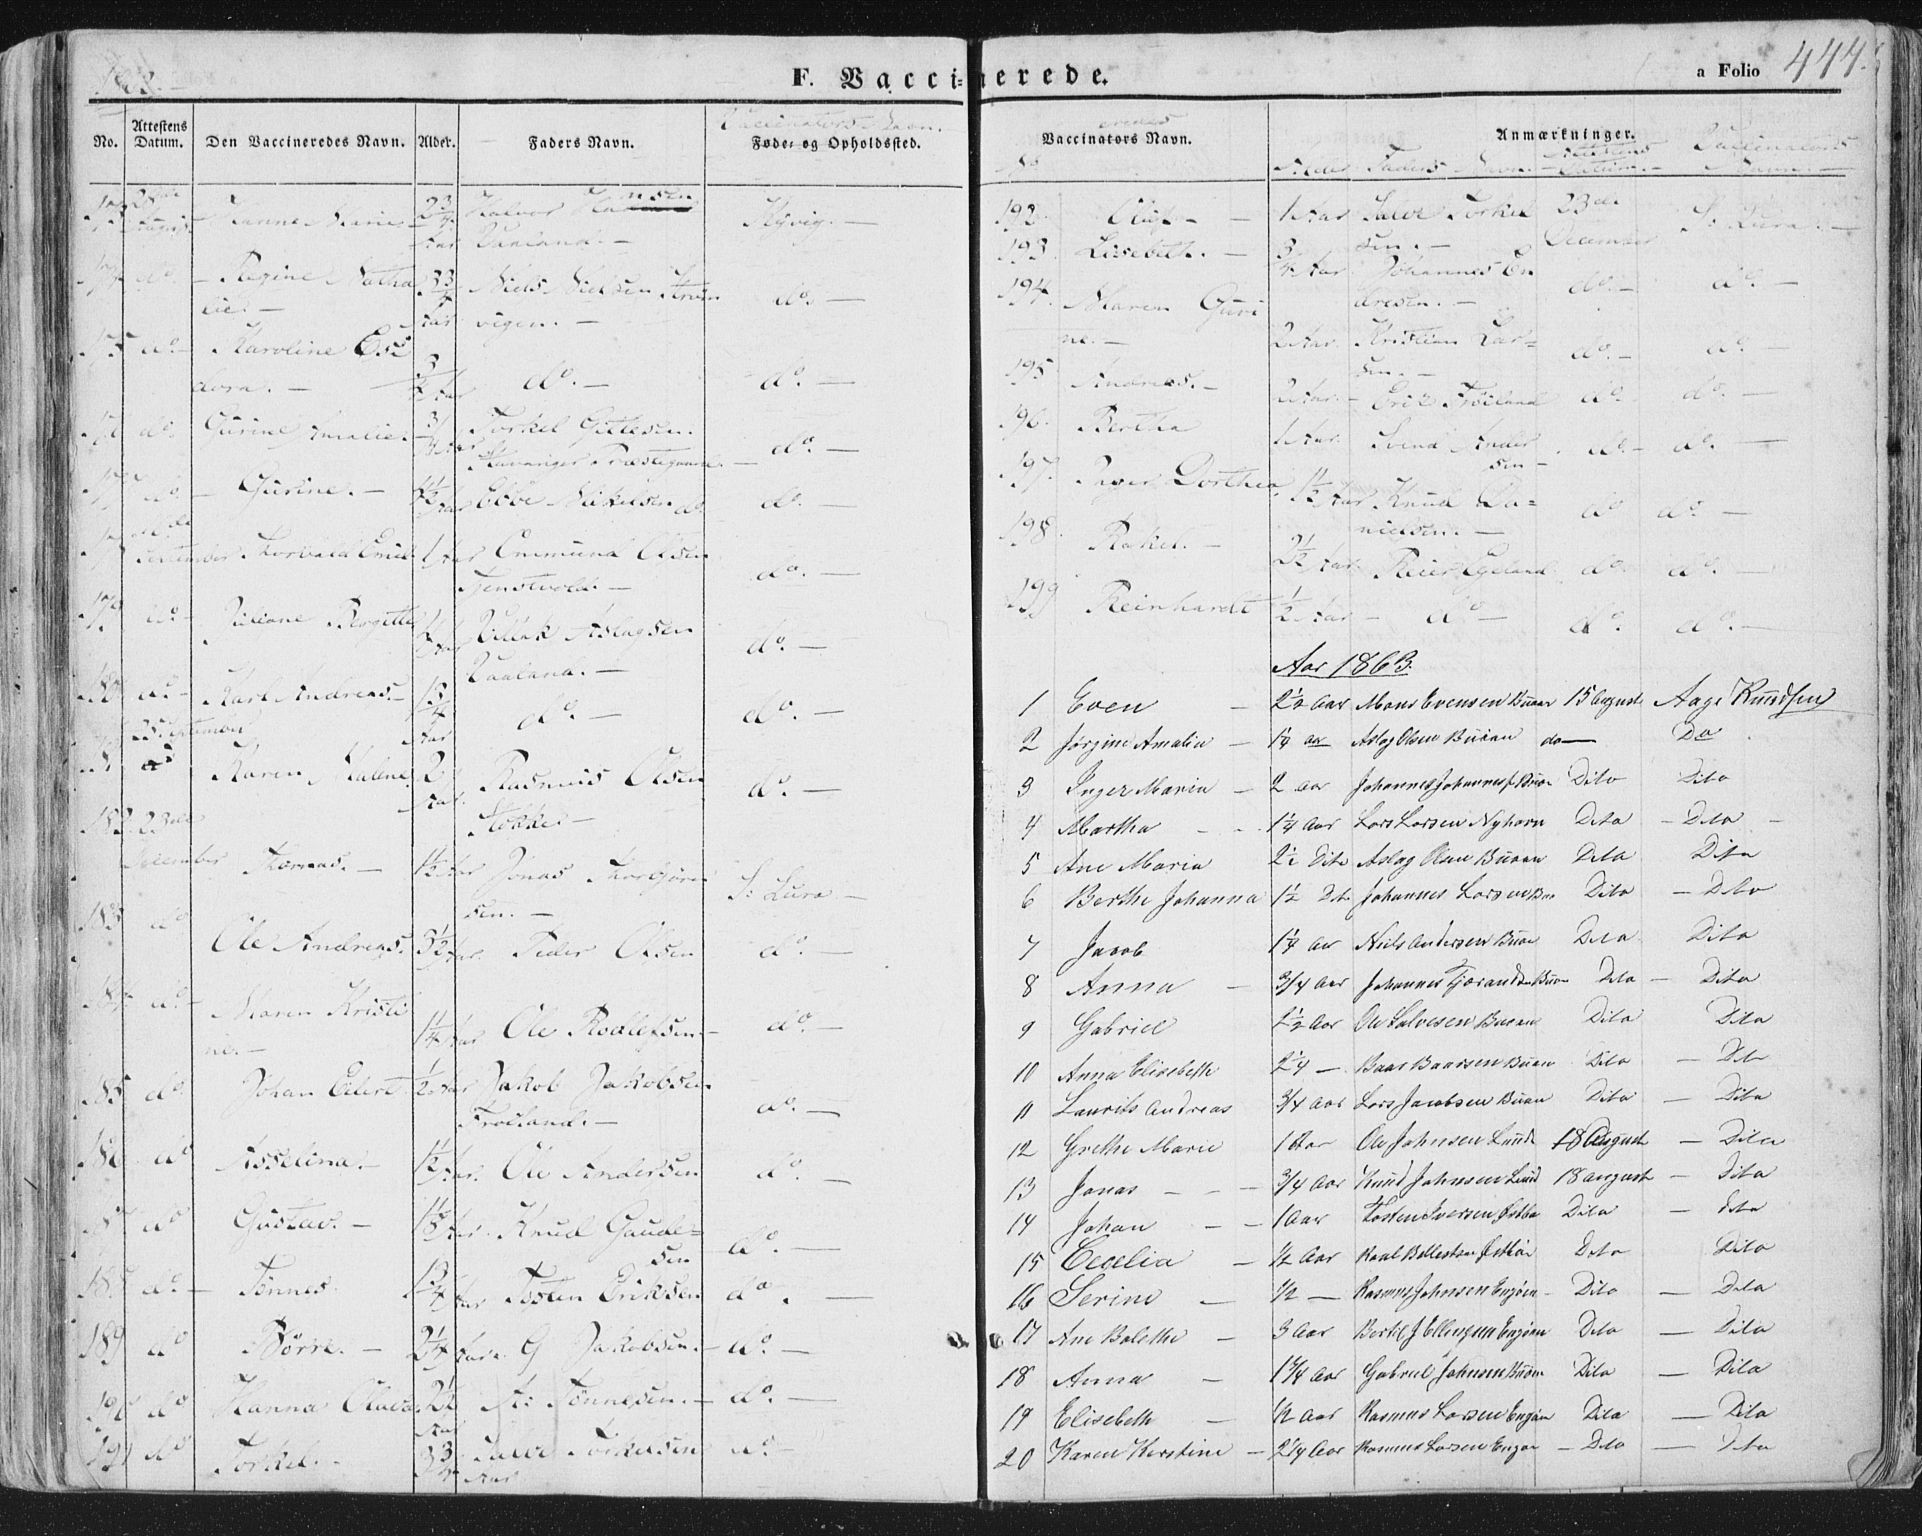 F. Vaccinerede.
a Folio 444.
No. Attestens Datum. Den Vaccineredes Navn. Alder. Faders Navn. Føde- og Opholdssted.
Vaccinators Navn.
Karine Marie 2 3/4 Aar Halvor Hansen Kyvig. –
Vaaland. –
do. – Regine Natha 3 3/4 Niels Nielsen Strøm do. –
lie. – Aar vigen. –
175 do. – Karoline Osi
dora. – 3/4 Aar do. – do. –
do. Gurine Amalie. – 3/4 Aar Torkel Gittesen. do. –
Stavanger Præstegaard. –
177 do. – Gurine. – 4 1/2 Aar Ebbe Mikkelsen do do. –
September Thorvald Emil 1 Aar Emmund Olsen do. –
Tjenstvold. –
179 do. – Juliane Bergitte 1/2 Aar Villik Aslagsen do. –
Vaaland. –
180 do. – Karl Andreas. – 1 3/4 Aar do. – do. –
25 September
do Karen Malene 2 Aar. Rasmus Olsen do. –
Stokke. –
182 23de
December Thomas. – 1 1/2 Aar Jonas Thorbjørn S: Lura –
sen. –
183 do Ole Andreas. 3 1/2 Aar. Peder Olsen do. –
184 do. – Maren Kristi
ne. – 1 1/4 Aar Ole Rodlefsen. – do. –
185 do. Johan Eilert 1/2 Aar Jakob Jakobsen do. –
Frøiland. –
186 do Asseline. – 1 1/2 Aar. Ole Andersen do. –
187 do Gustav. – Aar. Knud Gaude=
sen do. –
188 do. – Tønnes. 1 3/4 Aar Tosten Eriksen do. –
189 do Børre. – 2 1/4 Aar. G Jakobsen. – do. –
190 do Hanna Olava. 2 1/2 Aar A: Tønnesen. – do. –
191 do Torkel. – 3 3/4 Aar Salve Torkelsen do. –
Vaccinators Navn. Anmærkninger.
No Alder Faders Navn. – Attestens Datum. – Vaccinators Navn. –
192. Oluf – 1 Aar Salve Torkel 23de S. Lura. –
sen. – December
193. Lisebeth. – 3/4 Aar Johannes En do. – do. –
dresen. –
194. Maren Guri
ne. – 2 Aar Kristian Lar= do. – do. –
sen. –
195 Andreas. – 2 Aar. – Erik Frøiland do. do. –
196. Bertha 1 Aar. Svend Ander do. – do. –
sen –
197. Inger Dorthea 1 1/2 Aar Knud Da= do do. –
nielsen. –
198. Rakel. – 2 1/2 Aar Reier Egeland do. do. –
199 Reinhardt 1/2 Aar – do – do. do. –
Aar 1863.
1 Even – 2 1/2 Aar Mons Evensen Buøen 15 August Aage Knudsen
2 Jørgine Amalia – 1 1/4 aar Aslag Olsen Buøen do – Do
3 Inger Maria – 2 aar Johannes Johannes Buøe Dito Dito
4 Martha – 1 1/4 Aar Lars Larsen Nyhavn Dito – Dito –
5 Ane Maria 2 1/2 Dito Aslag Olsen Buøen Dito Dito
6 Berthe Johanna 1 1/2 Dito Johannes Larsen Buø Dito – Dito
7 Jacob 1 1/4 ar Neils Andersen Buøe Dito Dito
8 Anna – 3/4 Aar Johannes Tjorandsen Buøe Dito – Dito
9 Gabriel 2 1/2 Aar Ole Salvesen Buøen Dito Dito
10 Anna Elisebeth 2 1/4 – Baar Baarsen Buøen Dito – Dito
11 Laurits Andreas 3/4 Aar Lars Jacobsen Buøen Dito – Dito
12 Grethe Marie 1 Aar Ole Johnsen Lund 18 August – Dito
13 Jonas – – – 3/4 Aar Knud Johnsen Lund 18 august – Dito
14 Johan – – 1 Aar Tosten Iversen Østbø Dito – Dito
15 Cecelia – 1/2 Aar Dito Dito
16 Serine – 1/2 – Rasmus Johnsen Engøen – Dito – Dito
17 Ane Bolethe – 3 Aar Bertel J Ellingsen Engøen Dito – Dito
18 Anna – 1 1/4 Aar Gabriel Johnsen Buøen Dito – Dito
19 Elisebeth – 1/2 Aar Rasmus Larsen Engøen Dito – Dito
20 Karen Kirstine – 2 1/4 Aar Rasmus Larsen Engøe – Dito – Dito